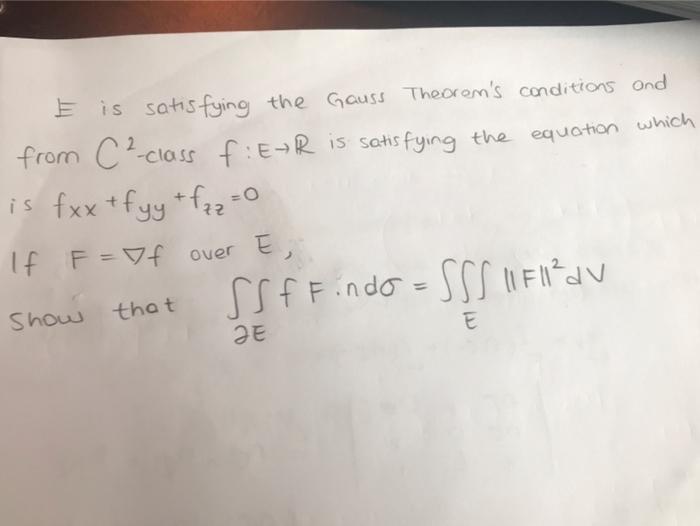 E is satisfying the Gauss Theorem's conditions and
from C²-class f : E→ℝ is satisfying the equation which
is fxx + fyy + fzz = 0
If F = ∇f over E,
Show that ∬_∂E f F . n dσ = ∭_E ||F||² dV